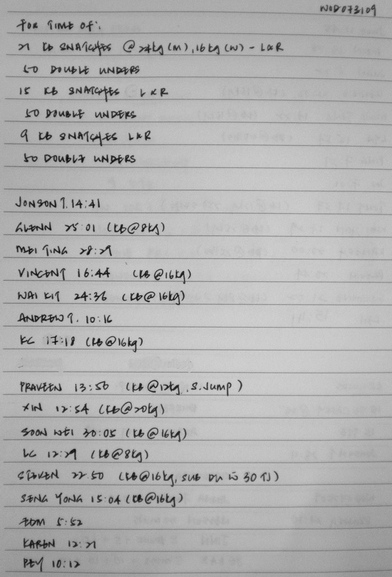 WOD073109
FOR TIME OF:
21 KB SNATCHES @ 24kg (M), 16kg (W) - L&R
50 DOUBLE UNDERS
15 KB SNATCHES L&R
50 DOUBLE UNDERS
9 KB SNATCHES L&R
50 DOUBLE UNDERS
JONSON T. 14:41
GLENN 25:01 (KB@8kg)
MEI TING 28:29
VINCENT 16:44 (KB@16kg)
WAI KIT 24:36 (KB@16kg)
ANDREW T. 10:16
KC 17:18 (KB@16kg)
PRAVEEN 13:56 (KB@12kg, S.Jump)
XIN 12:54 (KB@20kg)
SOON WEI 30:05 (KB@16kg)
LC 12:29 (KB@8kg)
STEVEN 22:50 (KB@16kg, SUB DU W 30 TJ)
SENG YONG 15:04 (KB@16kg)
5:52
KAREN 12:21
10:12